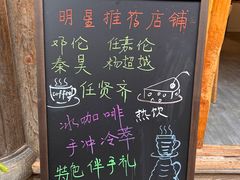 明星推荐店铺
邓伦 任嘉伦
秦昊 杨超越
coffee 任贤齐
冰咖啡 热饮
手冲冷萃
特包伴手礼